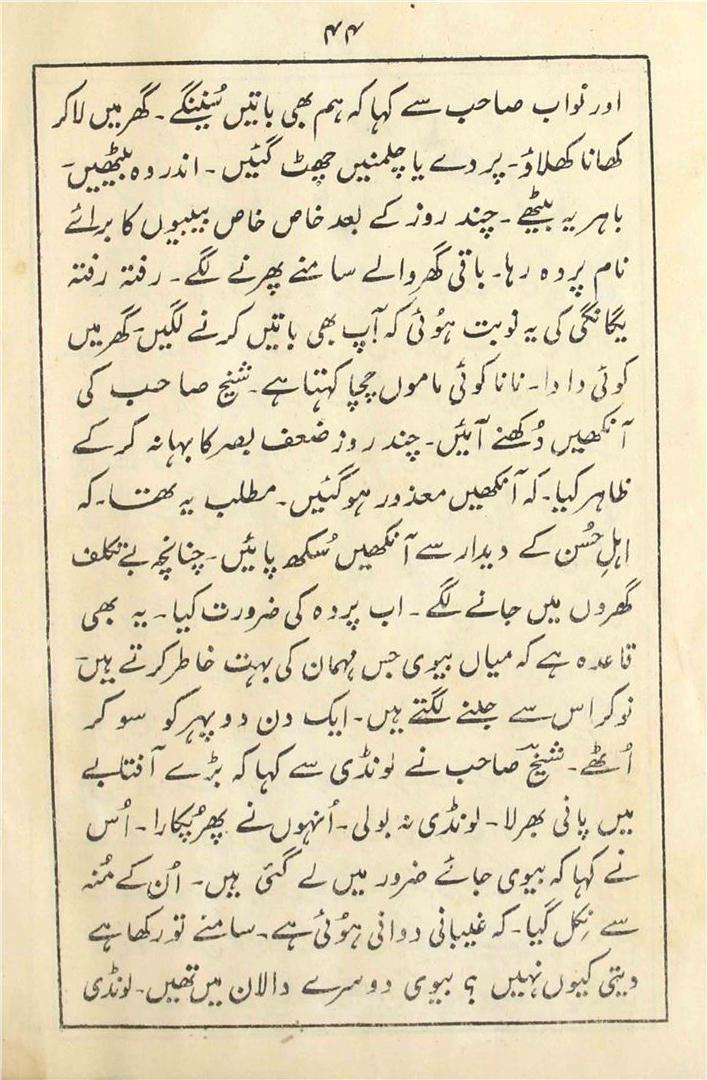 ۴۴
اور نواب صاحب سے کہا کہ ہم بھی باتیں سُنینگے۔ گھر میں لا کر
کھانا کھلاؤ۔ پردے یا چلمنیں چھٹ گئیں۔ اندر وہ بیٹھیں۔
باہر یہ بیٹھے۔ چند روز کے بعد خاص خاص بیبیوں کا برائے
نام پردہ رہا۔ باقی گھر والے سامنے پھرنے لگے۔ رفتہ رفتہ
یگانگی کی یہ نوبت ہوُئی کہ آپ بھی باتیں کرنے لگیں۔ گھر میں
کوئی دادا۔ نانا کوئی ماموں چچا کہتا ہے۔ شیخ صاحب کی
آنکھیں دُکھنے آئیں۔ چند روز ضعف بصر کا بہانہ کر کے
ظاہر کیا۔ کہ آنکھیں معذور ہو گئیں۔ مطلب یہ تھا۔ کہ
اہلِ حُسن کے دیدار سے آنکھیں سُکھ پائیں۔ چنانچہ بے تکلف
گھروں میں جانے لگے۔ اب پردہ کی ضرورت کیا۔ یہ بھی
قاعدہ ہے کہ میاں بیوی جس مہمان کی بہت خاطر کرتے ہیں۔
نوکر اس سے جلنے لگتے ہیں۔ ایک دن دوپہر کو سو کر
اُٹھے۔ شیخ صاحب نے لونڈی سے کہا کہ بڑے آفتابے
میں پانی بھر لا۔ لونڈی نہ بولی۔ اُنہوں نے پھر پُکارا۔ اُس
نے کہا کہ بیوی جائے ضرور میں لے گئی ہیں۔ اُن کے مُنہ
سے نِکل گیا۔ کہ غیبانی دوانی ہوُئی ہے۔ سامنے تو رکھا ہے
دیتی کیوں نہیں ؟ بیوی دوسرے دالان میں تھیں۔ لونڈی